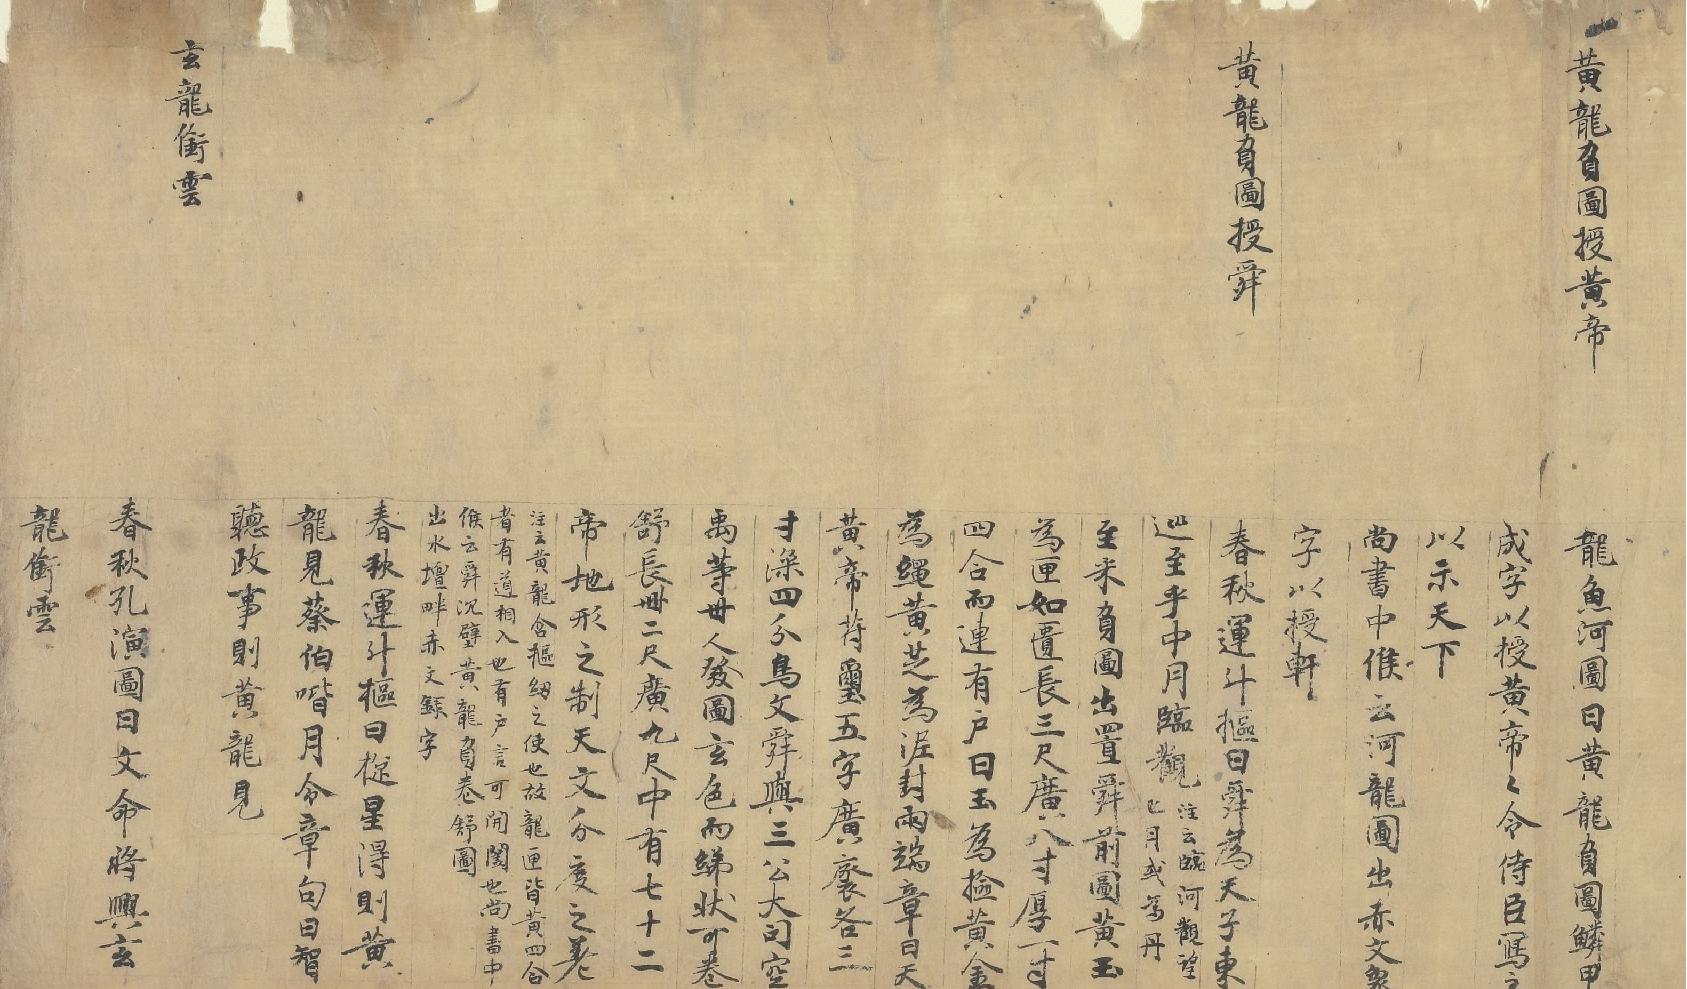 黃龍負圖授黃帝
龍魚河圖曰黃龍負圖鱗甲
成字以授黃帝〻令侍臣寫之
以示天下
尚書中候云河龍圖出赤文象
字以授軒
黃龍負圖授舜
春秋運斗樞曰舜為天子東
巡至乎中月臨觀
注云臨河觀望
也月或為丹
至采負圖出置舜前圖黃玉
為匣如匱長三尺廣八寸厚一寸
四合而連有戶白玉為撿黃金
為繩黃芝為泥封兩端章曰天
黃帝苻璽五字廣袤各三
寸深四分鳥文舜與三公大司空
禹等卅人發圖玄色而綈狀可卷
舒長卌二尺廣九尺中有七十二
帝地形之制天文分度之差
注云黃龍含樞紐之使也故龍匣皆黃四合
者有道相入也有戶言可開闔也尚書中
候云舜沉璧黃龍負卷舒圖
出水壇畔赤文錄字
春秋運斗樞曰樞星得則黃
龍見蔡伯喈月令章句曰智
聽政事則黃龍見
玄龍銜雲
春秋孔演圖曰文命將興玄
龍銜雲